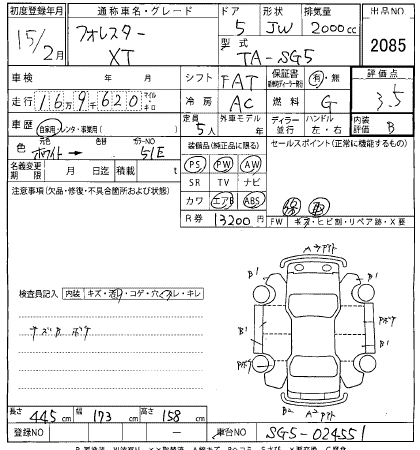 初度登録年月 通称車名・グレード ドア 形状 排気量 出品NO
15/2月 フォレスター XT 5 JW 2000cc 2085
型式 TA-SG5
車検 年 月 シフト FAT 保証書 有・無 評価点
走行 16万9千620 マイル キロ 冷房 AC 燃料 G 3.5
車歴 自家用・レンタ・事業用( ) 定員 5人 外車モデル 年 ディーラー 並行 ハンドル 左・右 内装評価 B
色 元色 ホワイト → 色替 カラーNO 51E 装備品(純正品に限る) セールスポイント(正常に機能するもの)
名義変更期限 月 日迄 積載 t PS PW AW
注意事項(欠品・修復・不具合箇所および状態) SR TV ナビ
カワ エアB ABS
R券 13200円 FW キズ・ヒビ割・リペア跡・X要
検査員記入 内装 キズ・汚れ・コゲ・穴・スレ・キレ
A2 B1 B1
B1 B1
B1
B2
長さ 445cm 幅 173cm 高さ 158cm
登録NO 車台NO SG5-024551